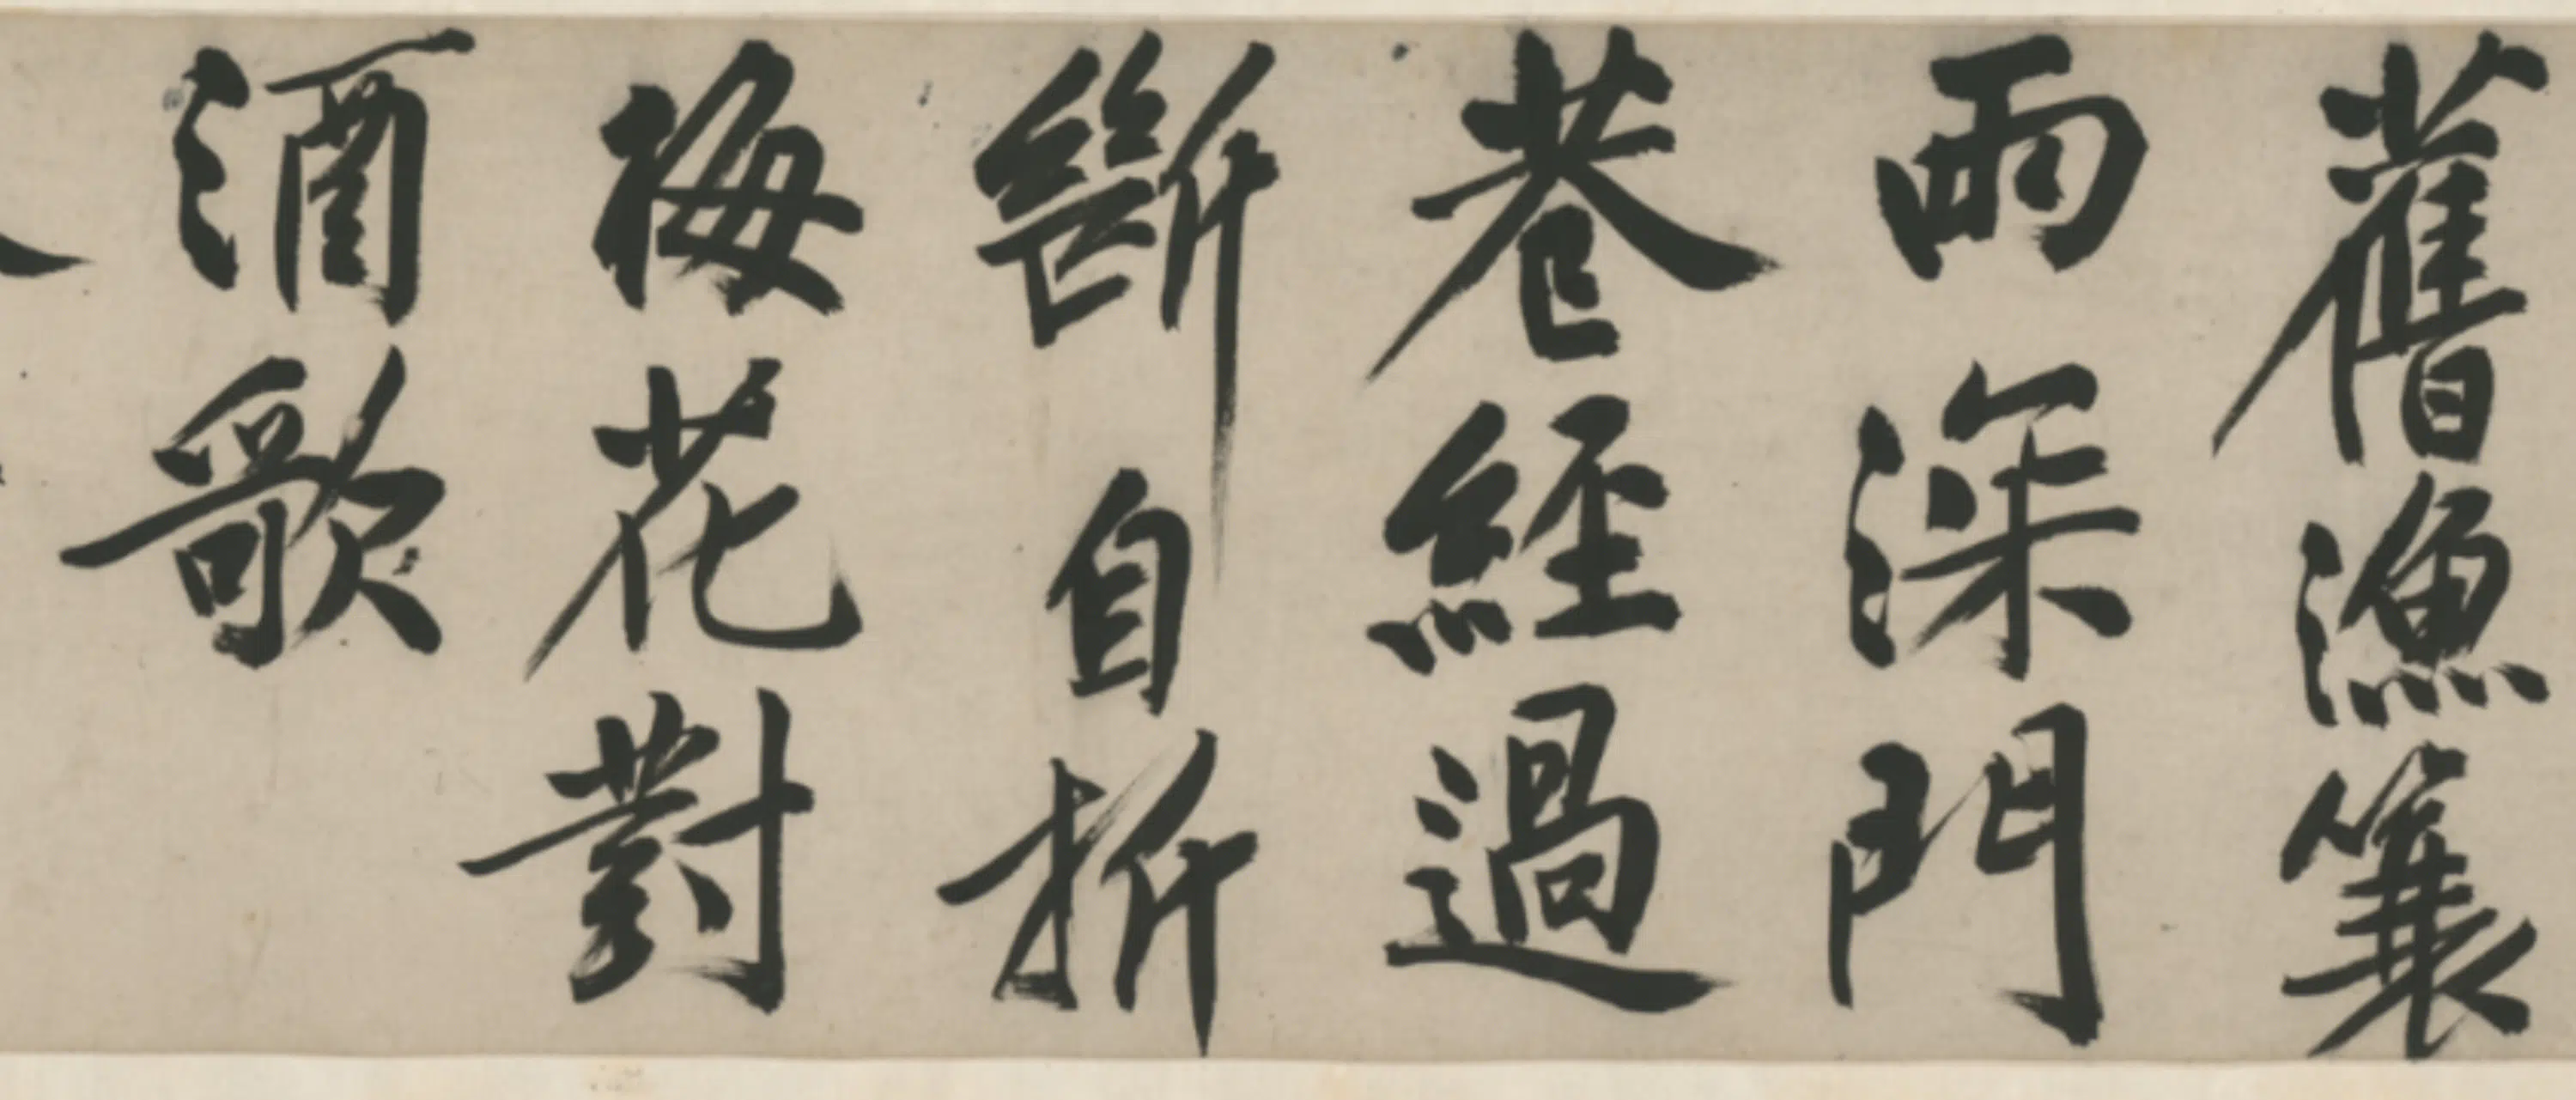 舊漁簑
雨深門
巷經過
斷自折
梅花對
酒歌